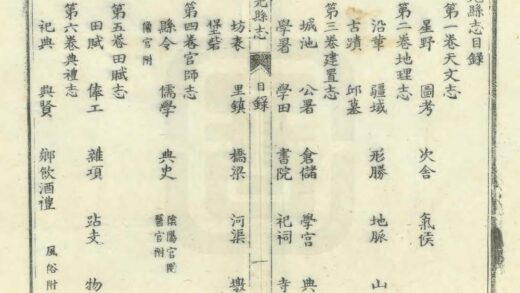 縣志目錄
第一卷天文志
星野 圖考 次舍 氣候
第二卷地理志
沿革 疆域 形勝 地脈 山
古蹟 邱墓
第三卷建置志
城池 公署 倉儲 學宮 典
學署 學田 書院 祀祠 寺
縣志 目錄 一
坊表 里鎮 橋梁 河渠 墩
堡砦
第四卷官師志
縣令 儒學 典史 陰陽官附 醫官附
僧官附
第五卷田賦志
田賦 俸工 雜項 站支 物
第六卷典禮志
祀典 典賢 鄉飲酒禮 風俗附